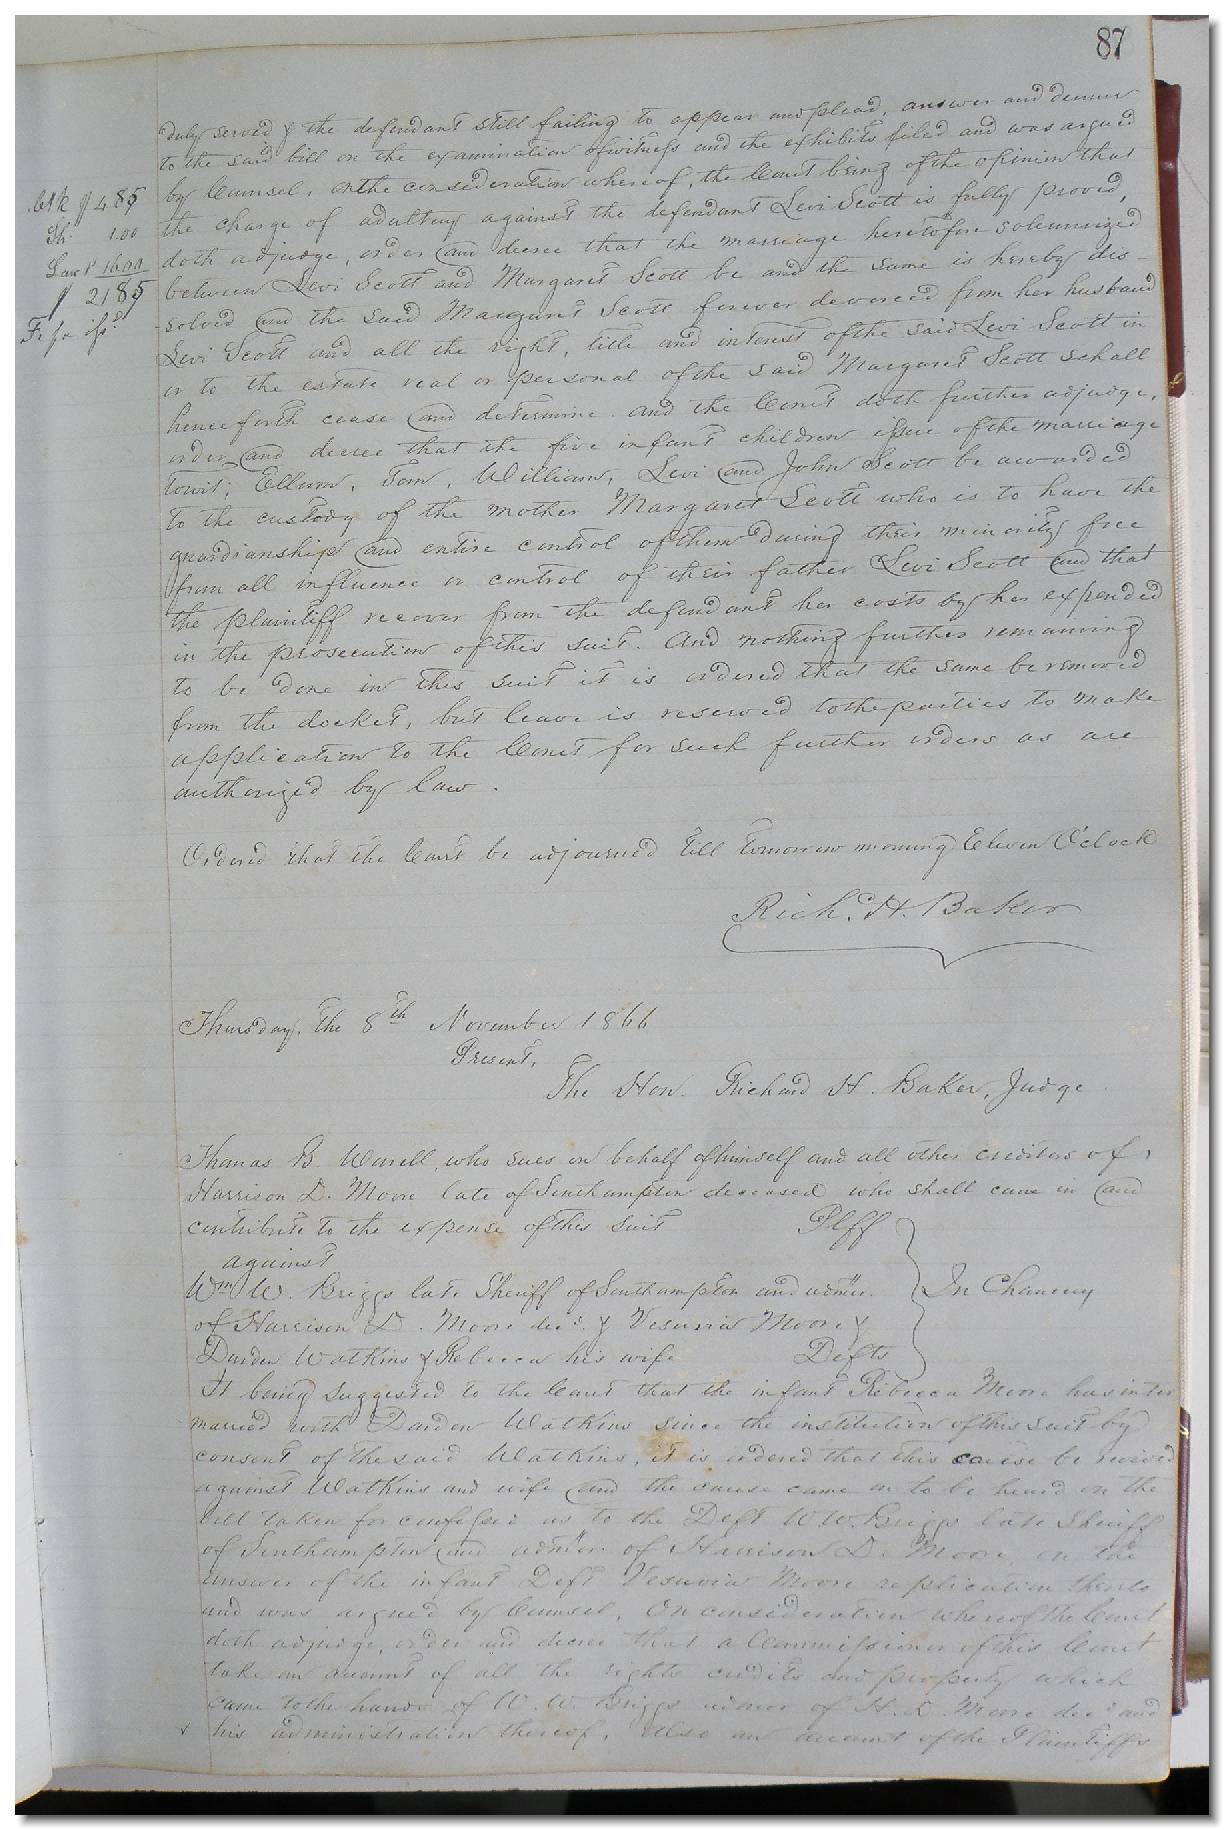 87
duly served & the defendant still failing to appear and plead, answer and demur
to the said bill on the examination of witness and the exhibits filed and was argued
by Counsel. On the consideration whereof, the Court being of the opinion that
the charge of adultery against the defendant Levi Scott is fully proved,
doth adjudge, order and decree that the marriage heretofore solemnized
between Levi Scott and Margaret Scott be and the same is hereby dis-
solved and the said Margaret Scott forever devorced from her husband
Levi Scott and all the right, title and interest of the said Levi Scott in
or to the estate real or personal of the said Margaret Scott schall
henceforth cease and determine. and the Court doth further adjudge,
order and decree that the five infant children issue of the marriage
towit; Ellum, Tom, William, Levi and John Scott be awarded
to the custody of the mother Margaret Scott who is to have the
guardianship and entire control of them during their minority free
from all influence or control of their father Levi Scott and that
the plaintiff recover from the defendant her costs by her expended
in the prosecution of this suit. And nothing further remaining
to be done in this suit it is ordered that the same be removed
from the docket, but leave is reserved to the parties to make
application to the Court for such further orders as are
authorized by law.
Clk $ 4 85
Sh. 1.00
21 85
Fi fa issd
Ordered that the Court be adjourned till tomorrow morning Eleven O'clock
Rich.d H. Baker
Thursday, the 8th November 1866
Present,
The Hon. Richard H. Baker, Judge
Thomas B. Worell, who sues on behalf of himself and all other creditors of
Harrison D. Moore late of Southampton deceased who shall come in and
contribute to the expense of this suit Plff
against
Wm W. Briggs late Sheriff of Southampton and admr. In Chancery
of Harrison D. Moore decd. & Vesuvia Moore &
Darden Watkins & Rebecca his wife Defts
It being suggested to the Court that the infant Rebecca Moore has inter
married with Darden Watkins since the institution of this suit by
consent of the said Watkins, it is ordered that this cause be revived
against Watkins and wife and the cause came on to be heard on the
bill taken for confessed as to the Deft W. W. Briggs late Sheriff
of Southampton and admor of Harrison D. Moore, on the
answer of the infant Deft Vesuvia Moore replication thereto
and was argued by Counsel, On consideration whereof the Court
doth adjudge, order and decree that a Commissioner of this Court
take an account of all the rights credits and property which
came to the hands of W. W. Briggs admor of H. D. Moore decd and
his administration thereof, Also an account of the Plaintiffs